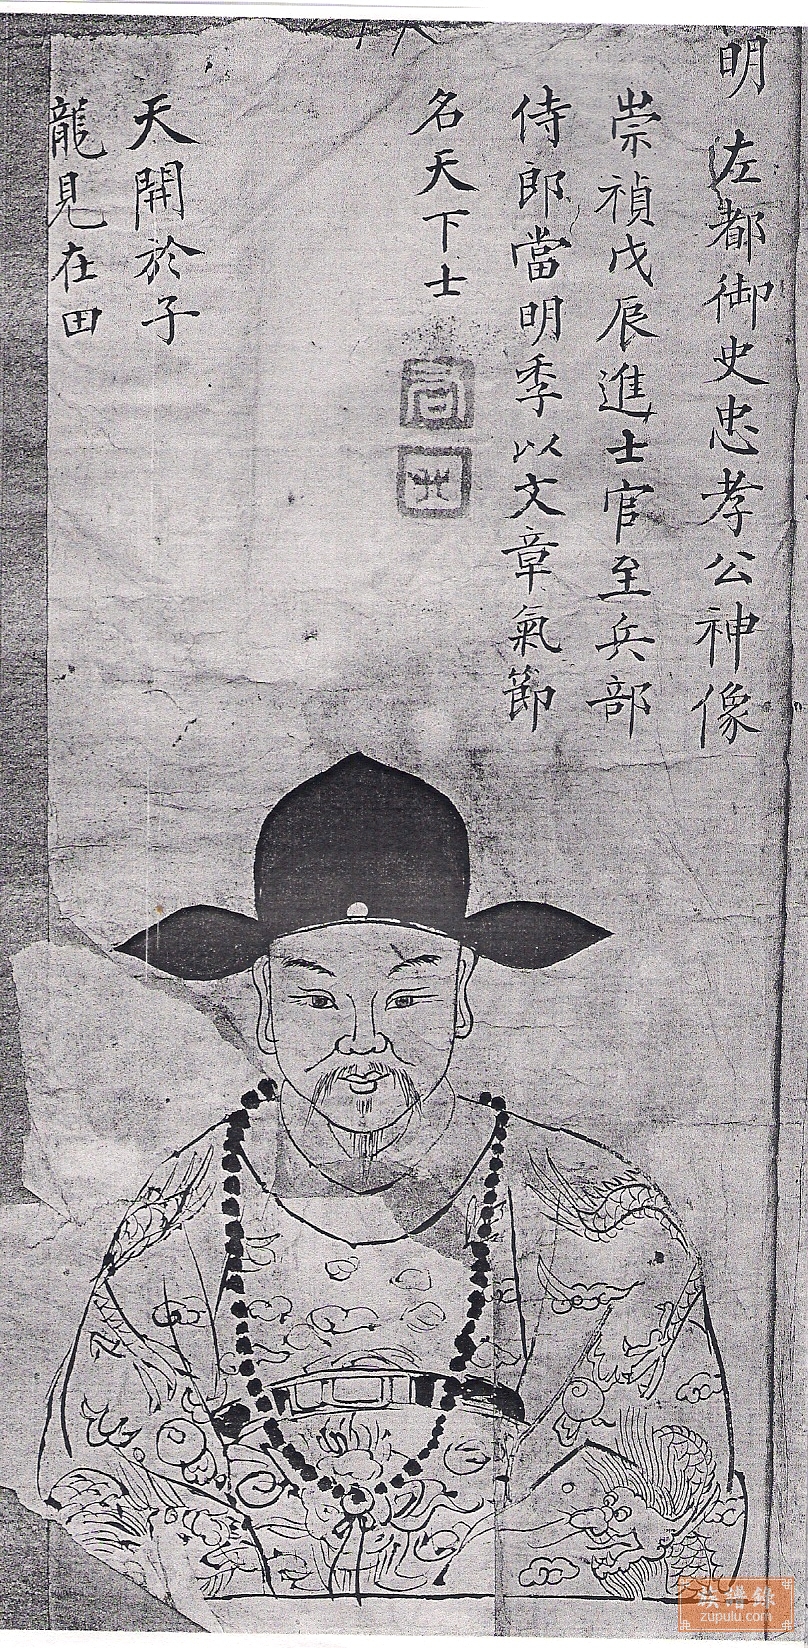 明左都御史忠孝公神像
崇禎戊辰進士官至兵部
侍郎當明季以文章氣節
名天下士
天開於子
龍見在田
族譜錄
zupulu.com